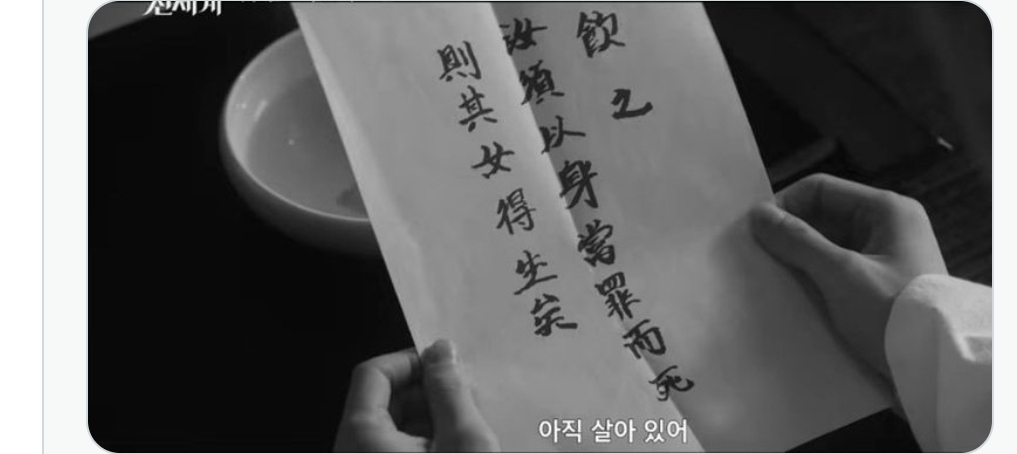 飮之
汝須以身當罪而死
則其女得生矣
아직 살아 있어